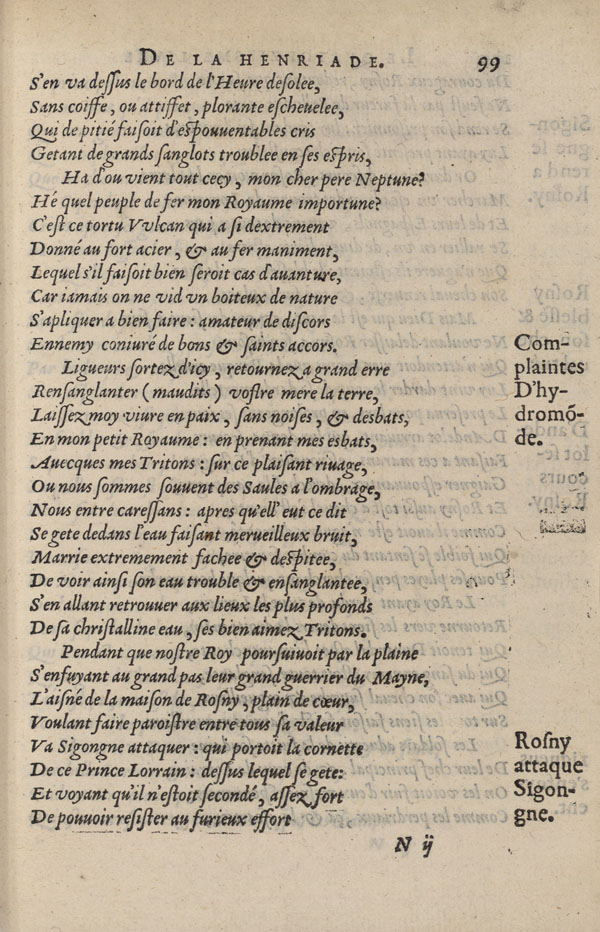 DE LA HENRIADE. 99
S'en va deſſus le bord de l'Heure deſolee,
Sans coiffe, ou attiffet, plorante eſchevelee,
Qui de pitié faiſoit d'eſpouuentables cris
Getant de grands ſanglots troublee en ſes eſpris,
Ha d'ou vient tout cecy, mon cher pere Neptune?
Hé quel peuple de fer mon Royaume importune?
C'eſt ce tortu Vulcan qui a ſi dextrement
Donné au fort acier, & au fer maniment,
Lequel s'il faiſoit bien ſeroit cas d'auanture,
Car iamais on ne vid vn boiteux de nature
S'apliquer a bien faire: amateur de diſcors
Ennemy coniuré de bons & ſaints accors.
Ligueurs ſortez d'icy, retournez a grand erre
Renſanglanter (maudits) voſtre mere la terre,
Laiſſez moy viure en paix, ſans noiſes, & desbats,
En mon petit Royaume: en prenant mes esbats,
Auecques mes Tritons: ſur ce plaiſant riuage,
Ou nous ſommes ſouuent des Saules a l'ombrage,
Nous entre careſſans: apres qu'ell' eut ce dit
Se gete dedans l'eau faiſant merueilleux bruit,
Marrie extremement fachee & deſpitee,
De voir ainſi ſon eau trouble & enſanglantee,
S'en allant retrouuer aux lieux les plus profonds
De ſa chriſtalline eau, ſes bien aimez Tritons.
Pendant que noſtre Roy pourſuiuoit par la plaine
S'enfuyant au grand pas leur grand guerrier du Mayne,
L'aiſné de la maiſon de Roſny, plain de cœur,
Voulant faire paroiſtre entre tous ſa valeur
Va Sigongne attaquer: qui portoit la cornette
De ce Prince Lorrain: deſſus lequel ſe gete:
Et voyant qu'il n'eſtoit ſecondé, aſſez fort
De pouuoir reſiſter au furieux effort
N ij
Com-
plaintes
D'hy-
dromó-
de.
Roſny
attaque
Sigon-
gne.